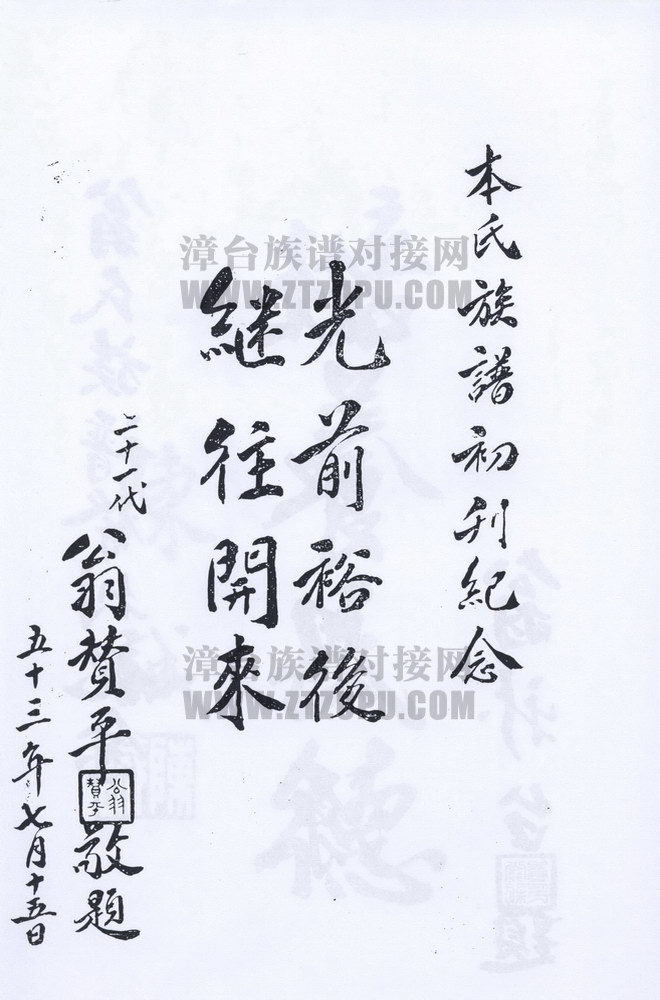 本氏族譜初刊紀念
光前裕後
継往開來
二十一代
翁贊平敬題
翁贊平
五十三年七月十五日
漳台族谱对接网
WWW.ZTZUPU.COM
漳台族谱对接网
WWW.ZTZUPU.COM